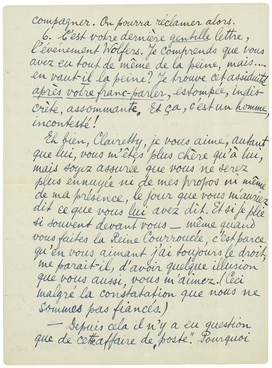 compagner. On pourra réclamer alors.
6. C'est votre dernière gentille lettre,
l'événement Wolfers. Je comprends que vous
avez eu tout de même de la peine, mais....
en vaut-il la peine? Je trouve cet assiduité
après votre franc-parler, estompée, indis-
crète, assommante. Et ça, c'est un homme,
incontesté!
Eh bien, Clairetty, je vous aime, autant
que lui, vous m'êtes plus chère qu'à lui,
mais soyez assurée que vous ne serez
plus ennuyée ni de mes propos ni même
de ma présence, le jour que vous m'auriez
dit ce que vous lui avez dit. Et si je plie
si souvent devant vous — même quand
vous faites la Reine Courroucée, c'est parce
qu'en vous aimant j'ai toujours le droit,
me paraît-il, d'avoir quelque illusion
que vous aussi, vous m'aimez! (Ceci
malgré la constatation que nous ne
sommes pas fiancés.)
— Depuis cela il n'y a eu question
que de cette affaire de "poste". Pourquoi